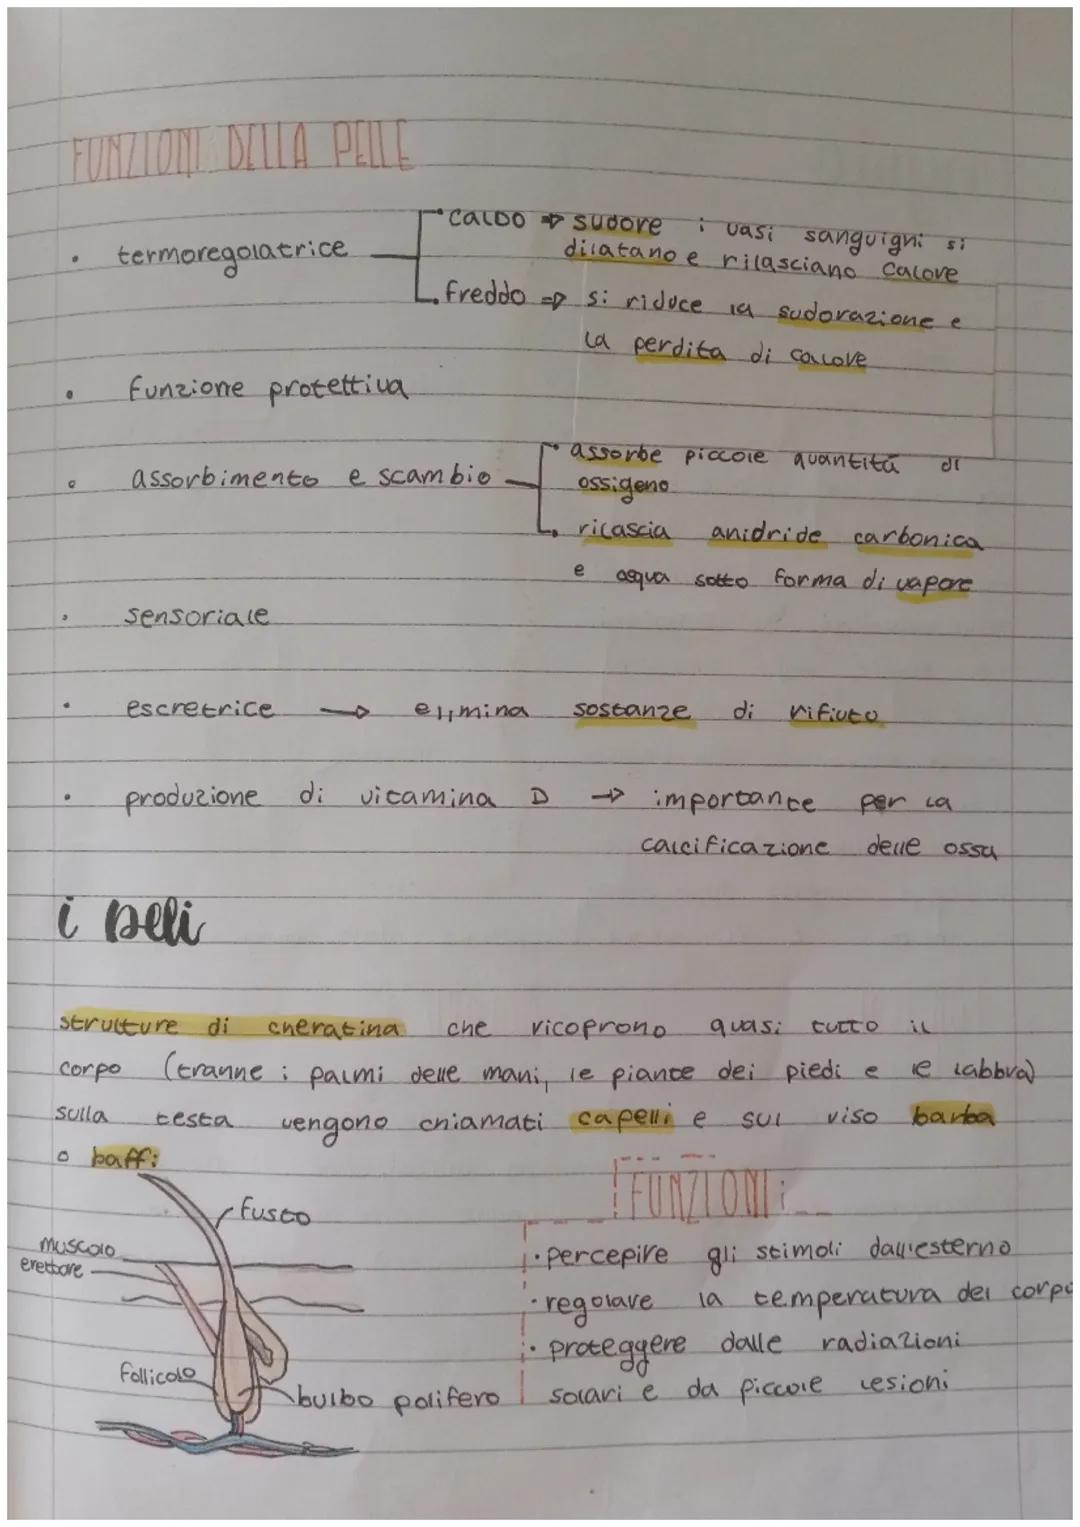 FUNZIONI DELLA PELLE
• termoregolatrice
• CALDO ⇒ sudore i vasi sanguigni si
dilatano e rilasciano calore
• freddo ⇒ si riduce la sudorazione e
la perdita di calore
• funzione protettiva
• assorbimento e scambio
• assorbe piccole quantità di
ossigeno
• rilascia anidride carbonica
e acqua sotto forma di vapore
• sensoriale
• escretrice → elimina sostanze di rifiuto
• produzione di vitamina D → importante per la
calcificazione delle ossa
i peli
strutture di cheratina che ricoprono quasi tutto il
corpo (tranne i palmi delle mani, le piante dei piedi e le labbra)
sulla testa vengono chiamati capelli e sul viso barba
o baffi
fusto
muscolo
erettore
follicolo
bulbo polifero
FUNZIONI:
• percepire gli stimoli dall'esterno
• regolare la temperatura del corpo
• proteggere dalle radiazioni
solari e da piccole lesioni